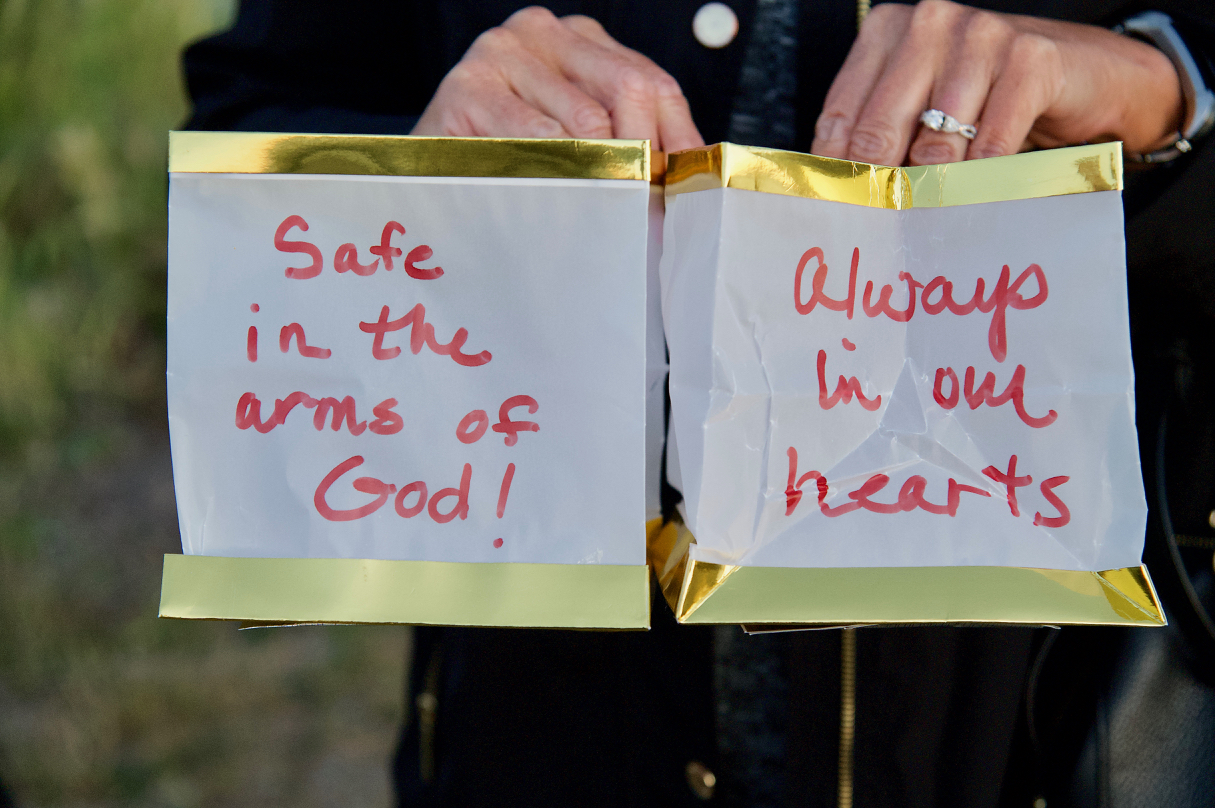 Safe
in the
arms of
God!
Always
in our
hearts